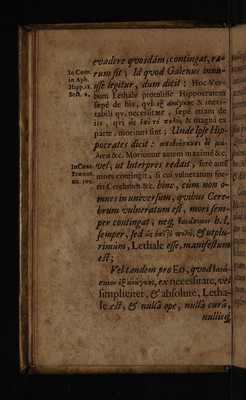 evadere quosdam, contingat, ra-
In Com.
in Aph.
Hipp. 18.
Sect. 6.
rum sit; Id quod Galenus innu-
isse legitur, dum dicit: Hoc Ver-
bum Lethale protulisse Hippocratem
sæpè de his, qvi ἐξ ἀνάγκης & inevi-
tabili qv. necessitate, sæpè etiam de
iis, qvi ὡς ἐπὶ τὸ πολὺ, & magnâ ex
parte, moriuntur; Unde Ipse Hip-
pocrates dicit: ἀποθνήσκουσι δὲ μά-
λιστα &c. Moriuntur autem maximè &c,
In Coac.
Prænot.
nu. 509.
vel, ut Interpres reddit, ferè autem
mors contingit, si cui vulneratum fue-
rit Cerebrum &c. hinc, cùm non o-
mnes in universum, quibus Cere-
brum vulneratum est, mors sem-
per contingat, neq; b. l.
semper, sed ὡς ἐπὶ τὸ πολὺ, & utplu-
rimùm, Lethale esse, manifestum
est;
Vel tandem pro Eo, quod
ἐξ ἀνάγκης, ex necessitate, vel
simpliciter, & absolutè, Letha-
le est, & nullâ ope, nullâ curâ,
nullisq;